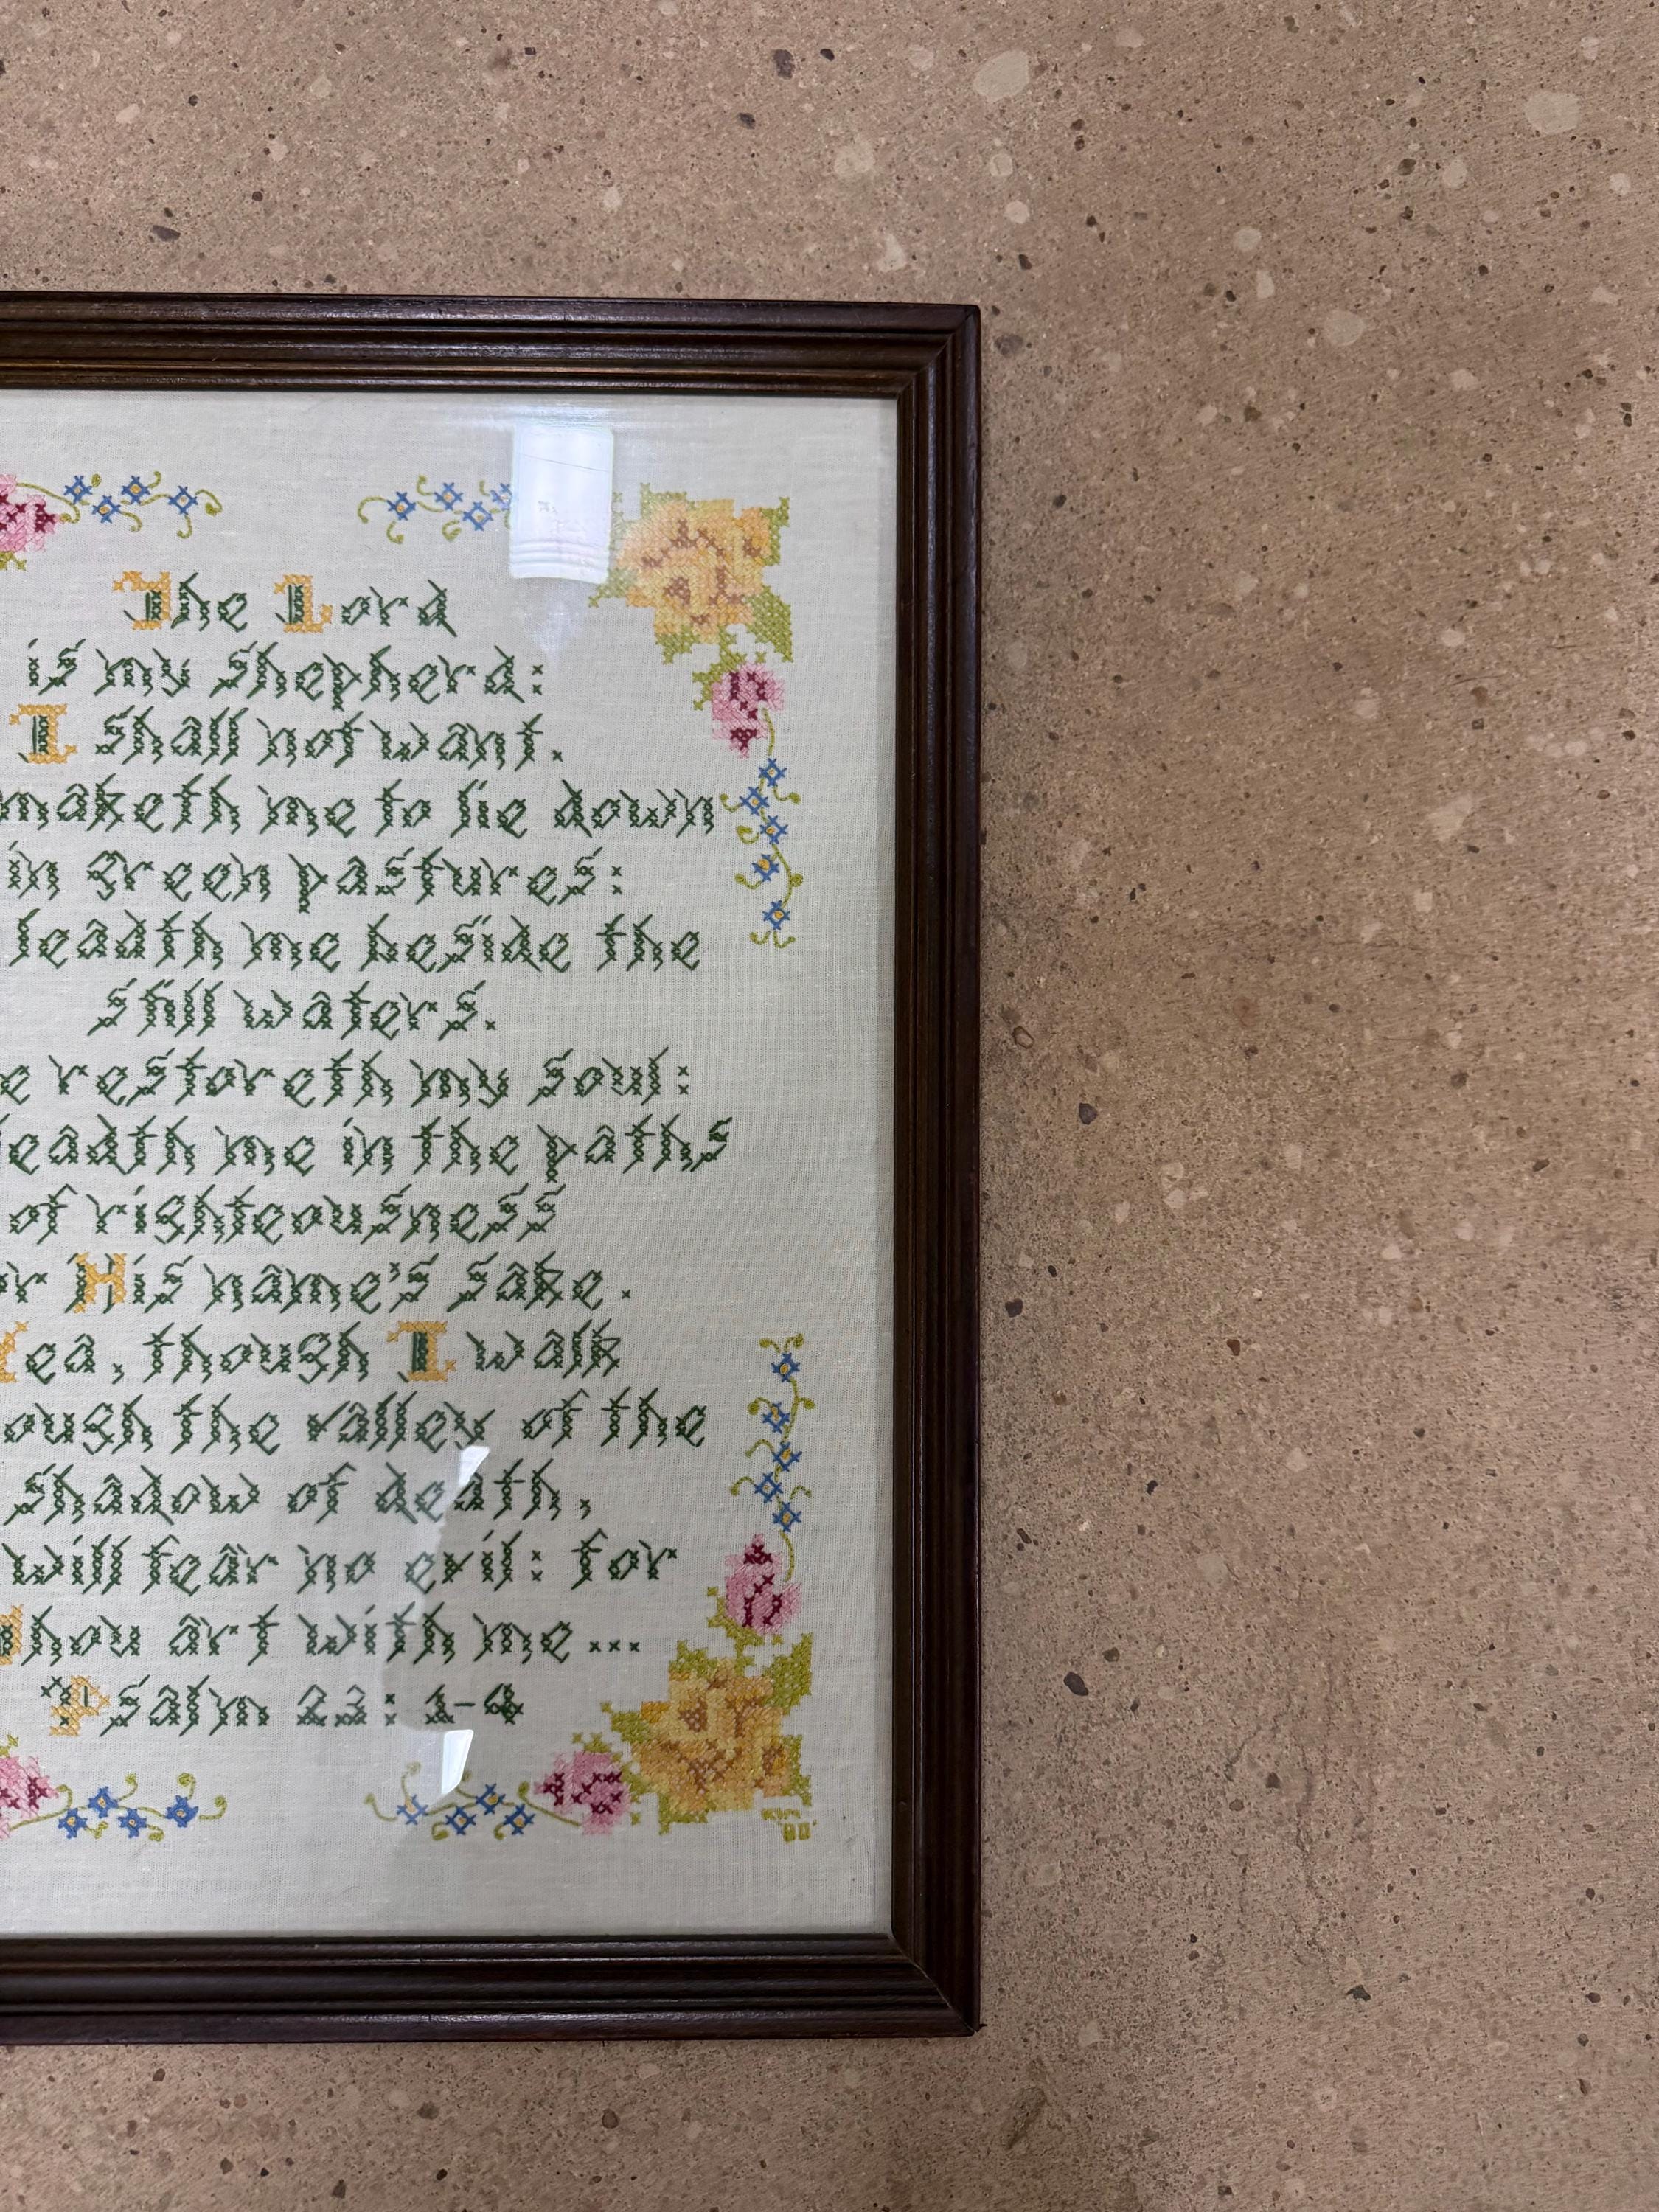 The Lord
is my shepherd:
I shall not want.
maketh me to lie down
in green pastures:
leadth me beside the
still waters.
e restoreth my soul:
eadth me in the paths
of righteousness
r His name's sake.
Yea, though I walk
ough the valley of the
shadow of death,
will fear no evil: for
Thou art with me...
Psalm 23: 1-4
KIM